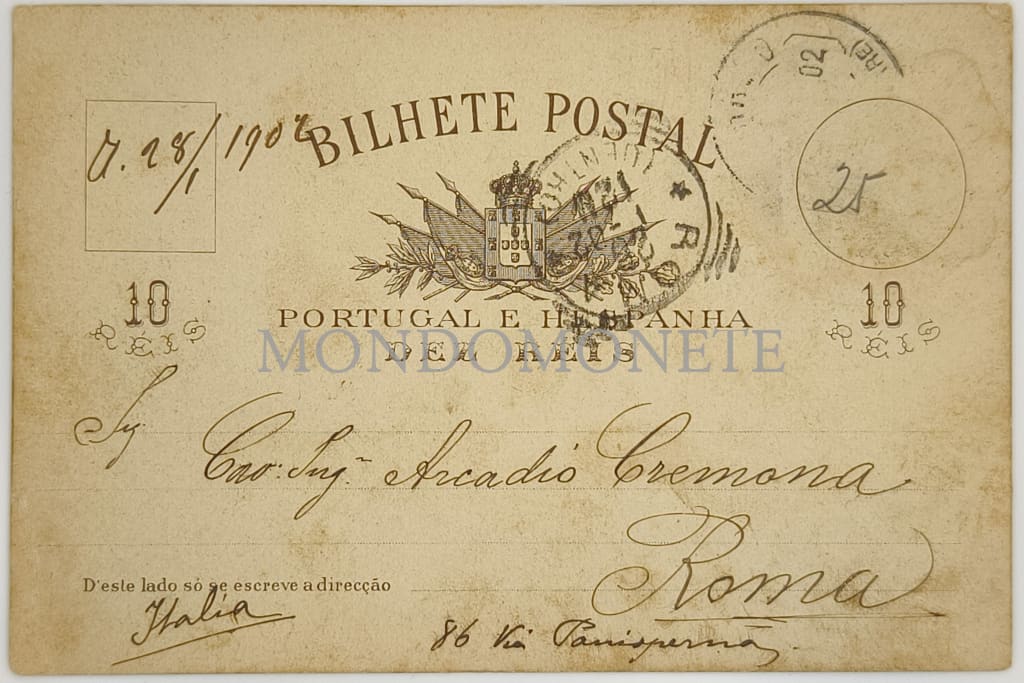 BILHETE POSTAL
28/1 1902
02
25
10
REIS
10
REIS
PORTUGAL E HESPANHA
DEZ REIS
MONDOMONETE
Sig
Cav: Ing. Arcadio Cremona
Roma
D'este lado só se escreve a direcção
Italia
86 Via Panisperna